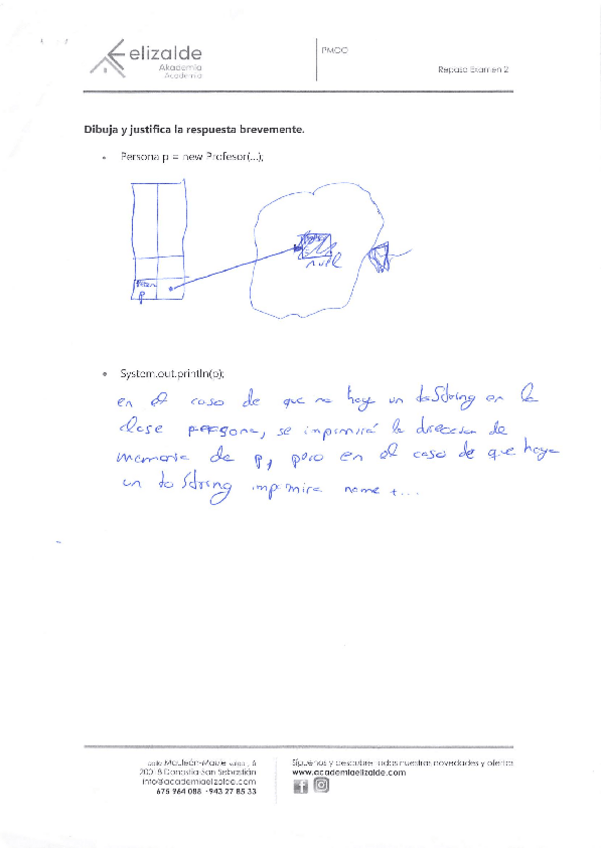 elizalde
Akademia
Academia
PMOO
Repaso Examen 2
Dibuja y justifica la respuesta brevemente.
• Persona p = new Profesor(...);
null
p
• System.out.println(p);
en el caso de que no haya un toString en la
clase persona, se imprimirá la direccion de
memoria de p, pero en el caso de que haya
un toString imprimira nome +...
20018 Donostia-San Sebastián
info@academiaelizalde.com
675 964 088 · 943 27 85 33
Síguenos y descubre todas nuestras novedades y ofertas
www.academiaelizalde.com